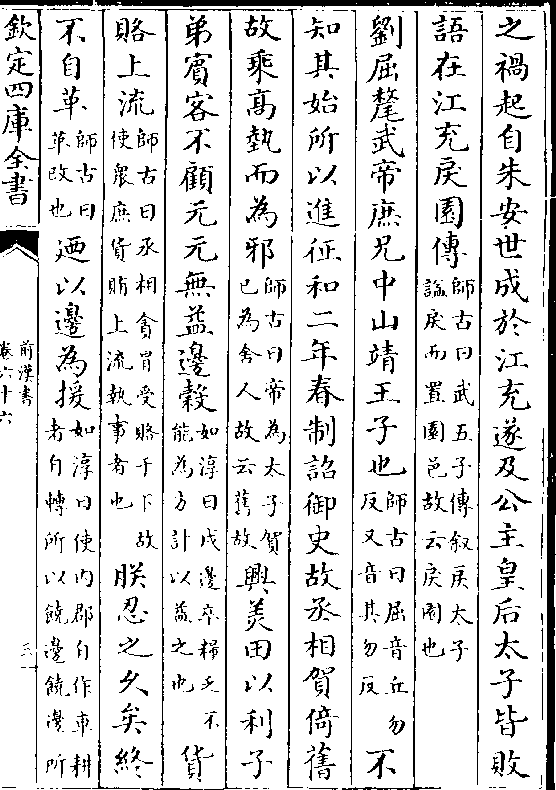 之禍起自朱安世成於江充遂及公主皇后太子皆敗
語在江充戾園傳師古曰武五子傳叙戾太子
諡戾而置園邑故云戾園也
劉屈氂武帝庶兄中山靖王子也師古曰屈音丘勿
反又音其勿反不
知其始所以進征和二年春制詔御史故丞相賀倚舊
故乘高埶而為邪師古曰帝為太子賀
已為舍人故云舊故興美田以利子
弟賓客不顧元元無益邊穀如淳曰戍邊卒糧乏不
能為方計以益之也貨
賂上流師古曰丞相貪冒受賂于下故
使衆庶貨賄上流執事者也朕忍之久矣終
不自革師古曰
革改也廼以邊為援如淳曰使内郡自作車耕
者自轉所以饒邊饒邊所
欽定四庫全書
前漢書
卷六十六
三